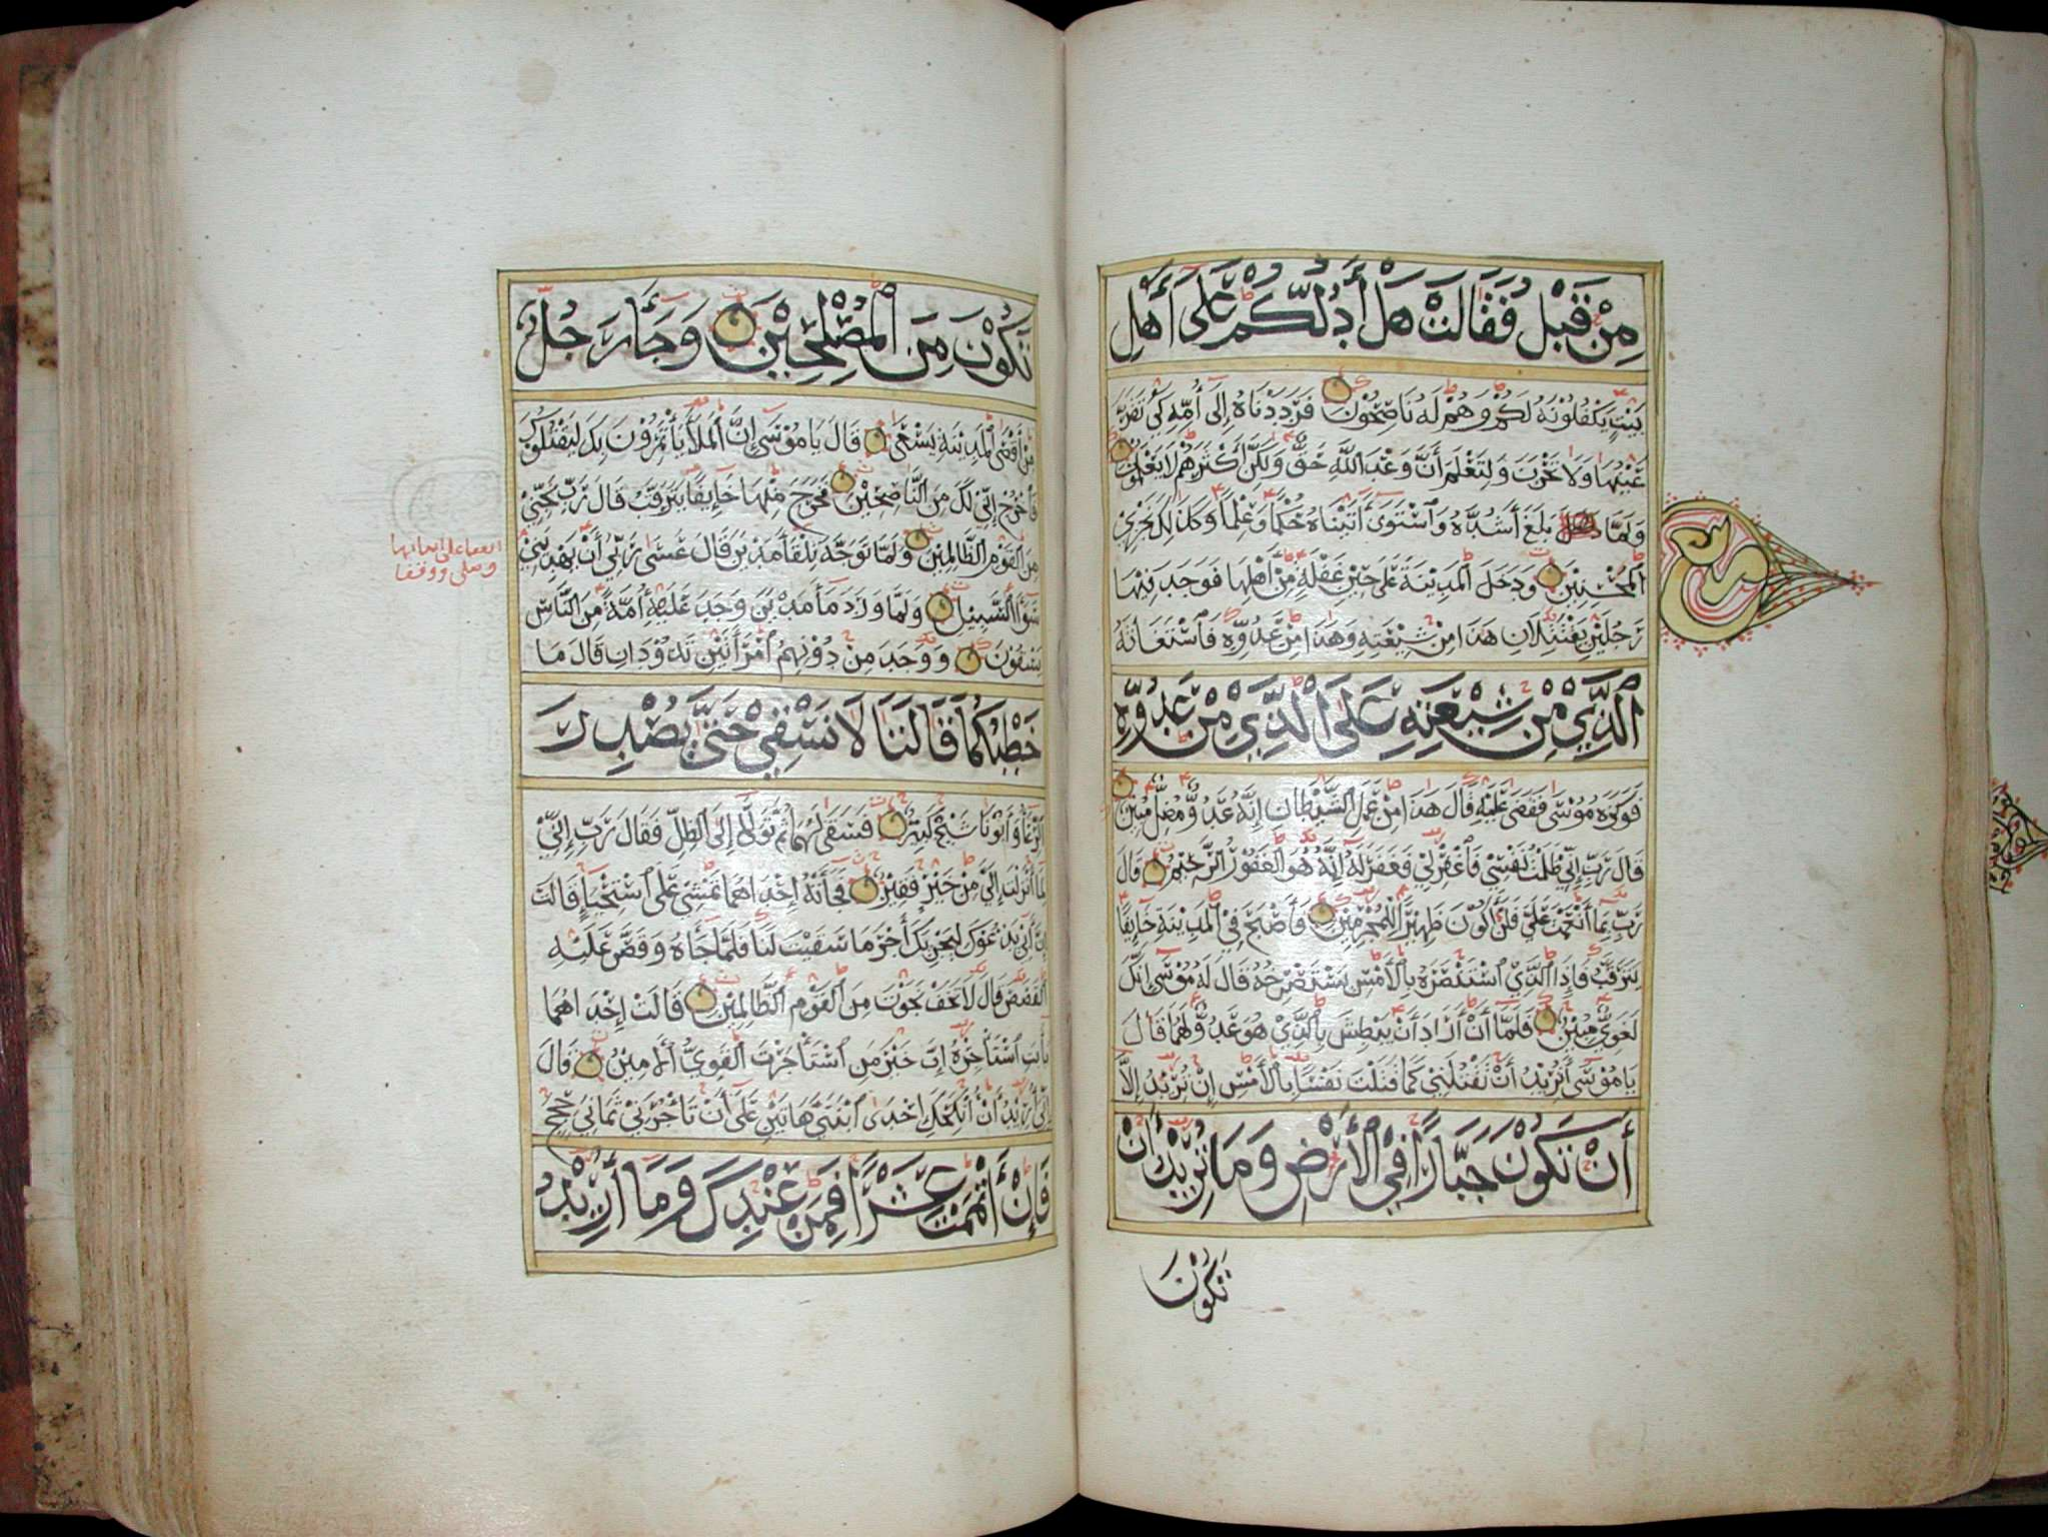 مِنْ قَبْلُ فَقَالَتْ هَلْ أَدُلُّكُمْ عَلَى أَهْلِ
بَيْتٍ يَكْفُلُونَهُ لَكُمْ وَهُمْ لَهُ نَاصِحُوْنَ فَرَدَدْنَاهُ إِلَى أُمِّهِ كَيْ تَقَرَّ
عَيْنُهَا وَلَا تَحْزَنَ وَلِتَعْلَمَ أَنَّ وَعْدَ اللَّهِ حَقٌّ وَلَكِنَّ أَكْثَرَهُمْ لَا يَعْلَمُوْنَ
وَلَمَّا بَلَغَ أَشُدَّهُ وَاسْتَوَى أَتَيْنَاهُ حُكْمًا وَعِلْمًا وَكَذَلِكَ نَجْزِي
الْمُحْسِنِيْنَ وَدَخَلَ الْمَدِيْنَةَ عَلَى حِيْنِ غَفْلَةٍ مِنْ أَهْلِهَا فَوَجَدَ فِيْهَا
رَجُلَيْنِ يَقْتَتِلَانِ هَذَا مِنْ شِيْعَتِهِ وَهَذَا مِنْ عَدُوِّهِ فَاسْتَغَاثَهُ
الَّذِيْ مِنْ شِيْعَتِهِ عَلَى الَّذِيْ مِنْ عَدُوِّهِ
فَوَكَزَهُ مُوْسَى فَقَضَى عَلَيْهِ قَالَ هَذَا مِنْ عَمَلِ الشَّيْطَانِ إِنَّهُ عَدُوٌّ مُضِلٌّ مُبِيْنٌ
قَالَ رَبِّ إِنِّي ظَلَمْتُ نَفْسِيْ فَاغْفِرْ لِيْ فَغَفَرَ لَهُ إِنَّهُ هُوَ الْغَفُوْرُ الرَّحِيْمُ قَالَ
رَبِّ بِمَا أَنْعَمْتَ عَلَيَّ فَلَنْ أَكُوْنَ ظَهِيْرًا لِلْمُجْرِمِيْنَ فَأَصْبَحَ فِيْ الْمَدِيْنَةِ خَائِفًا
يَتَرَقَّبُ فَإِذَا الَّذِيْ اسْتَنْصَرَهُ بِالْأَمْسِ يَسْتَصْرِخُهُ قَالَ لَهُ مُوْسَى إِنَّكَ
لَغَوِيٌّ مُبِيْنٌ فَلَمَّا أَنْ أَرَادَ أَنْ يَبْطِشَ بِالَّذِيْ هُوَ عَدُوٌّ لَهُمَا قَالَ
يَا مُوْسَى أَتُرِيْدُ أَنْ تَقْتُلَنِيْ كَمَا قَتَلْتَ نَفْسًا بِالْأَمْسِ إِنْ تُرِيْدُ إِلَّا
أَنْ تَكُوْنَ جَبَّارًا فِيْ الْأَرْضِ وَمَا تُرِيْدُ أَنْ
تَكُوْنَ
تَكُوْنَ مِنَ الْمُصْلِحِيْنَ وَجَاءَ رَجُلٌ
مِنْ أَقْصَى الْمَدِيْنَةِ يَسْعَى قَالَ يَا مُوْسَى إِنَّ الْمَلَأَ يَأْتَمِرُوْنَ بِكَ لِيَقْتُلُوكَ
فَاخْرُجْ إِنِّيْ لَكَ مِنَ النَّاصِحِيْنَ فَخَرَجَ مِنْهَا خَائِفًا يَتَرَقَّبُ قَالَ رَبِّ نَجِّنِيْ
مِنَ الْقَوْمِ الظَّالِمِيْنَ وَلَمَّا تَوَجَّهَ تِلْقَاءَ مَدْيَنَ قَالَ عَسَى رَبِّيْ أَنْ يَهْدِيَنِيْ
سَوَاءَ السَّبِيْلِ وَلَمَّا وَرَدَ مَاءَ مَدْيَنَ وَجَدَ عَلَيْهِ أُمَّةً مِنَ النَّاسِ
يَسْقُوْنَ وَوَجَدَ مِنْ دُوْنِهِمُ امْرَأَتَيْنِ تَذُوْدَانِ قَالَ مَا
خَطْبُكُمَا قَالَتَا لَا نَسْقِيْ حَتَّى يُصْدِرَ
الرِّعَاءُ وَأَبُوْنَا شَيْخٌ كَبِيْرٌ فَسَقَى لَهُمَا ثُمَّ تَوَلَّى إِلَى الظِّلِّ فَقَالَ رَبِّ إِنِّيْ
لِمَا أَنْزَلْتَ إِلَيَّ مِنْ خَيْرٍ فَقِيْرٌ فَجَاءَتْهُ إِحْدَاهُمَا تَمْشِيْ عَلَى اسْتِحْيَاءٍ قَالَتْ
إِنَّ أَبِيْ يَدْعُوْكَ لِيَجْزِيَكَ أَجْرَ مَا سَقَيْتَ لَنَا فَلَمَّا جَاءَهُ وَقَصَّ عَلَيْهِ
الْقَصَصَ قَالَ لَا تَخَفْ نَجَوْتَ مِنَ الْقَوْمِ الظَّالِمِيْنَ قَالَتْ إِحْدَاهُمَا
يَا أَبَتِ اسْتَأْجِرْهُ إِنَّ خَيْرَ مَنِ اسْتَأْجَرْتَ الْقَوِيُّ الْأَمِيْنُ قَالَ
إِنِّيْ أُرِيْدُ أَنْ أُنْكِحَكَ إِحْدَى ابْنَتَيَّ هَاتَيْنِ عَلَى أَنْ تَأْجُرَنِيْ ثَمَانِيَ حِجَجٍ
فَإِنْ أَتْمَمْتَ عَشْرًا فَمِنْ عِنْدِكَ وَمَا أُرِيْدُ